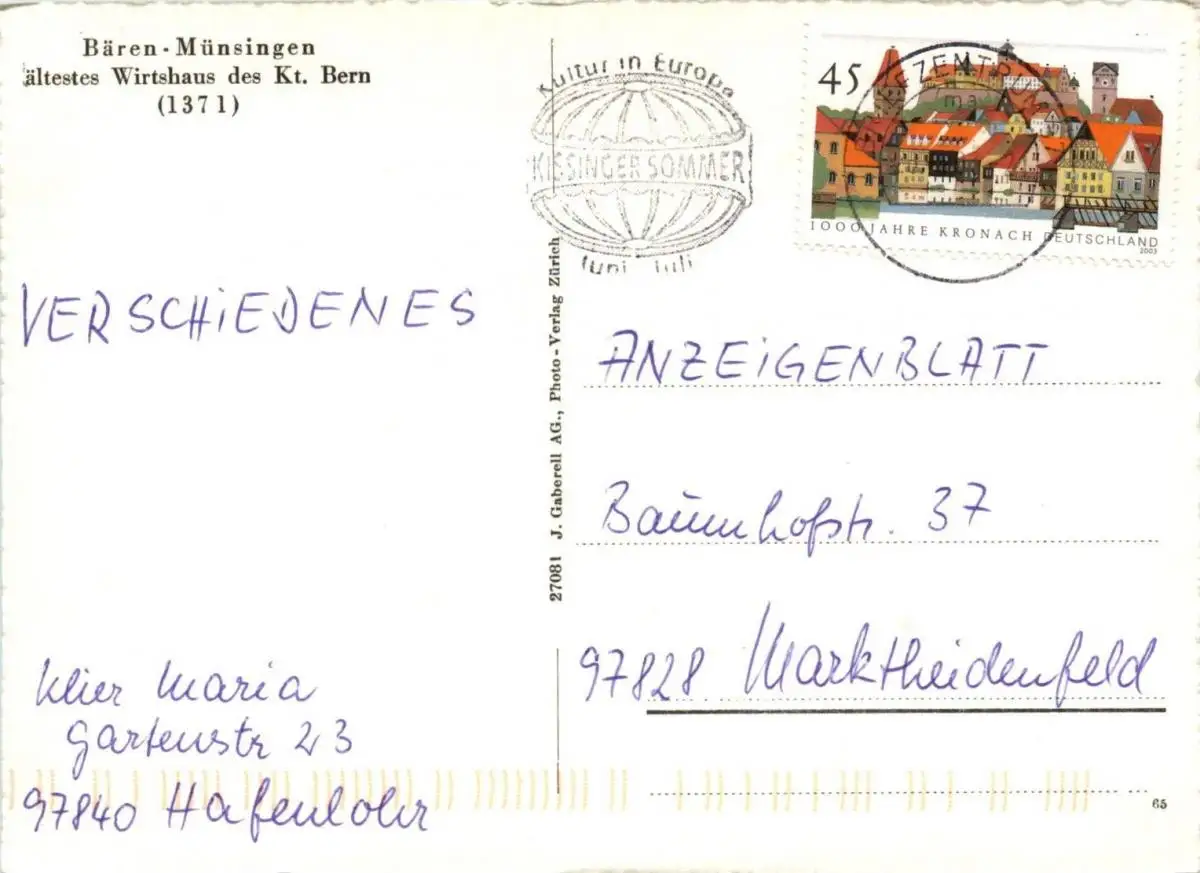 Bären - Münsingen
ältestes Wirtshaus des Kt. Bern
(1371)
Kultur in Europa
KISSINGER SOMMER
Juni Juli
45
1000 JAHRE KRONACH DEUTSCHLAND
2003
VERSCHIEDENES
27081 J. Gaberell AG., Photo-Verlag Zürich
ANZEIGENBLATT
Baumhofstr. 37
97828 Marktheidenfeld
Klier Maria
Gartenstr 23
97840 Hafenlohr
65